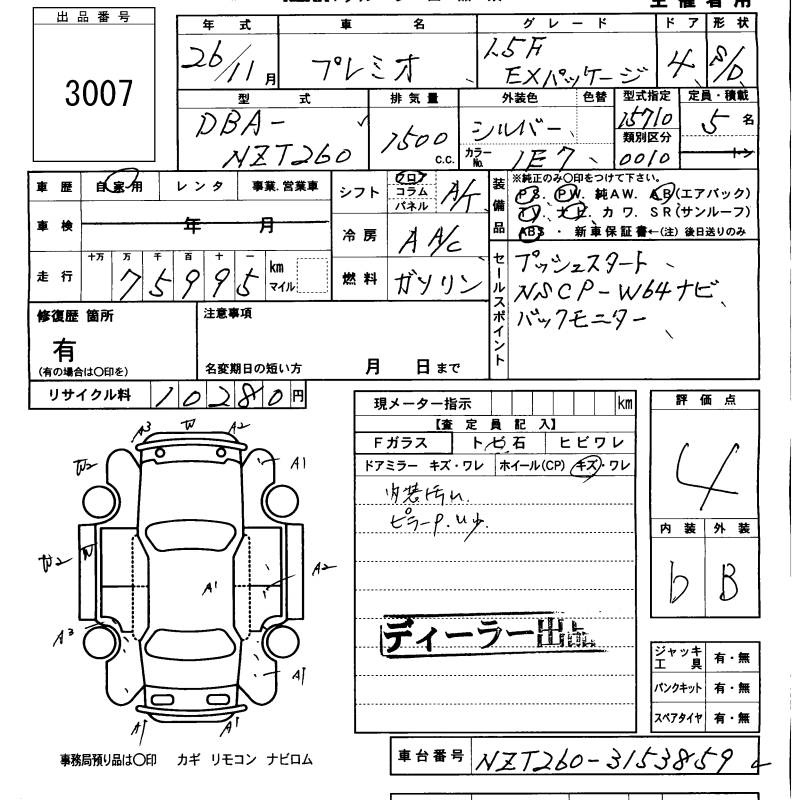 出品番号
3007
年式 車名 グレード ドア 形状
26/11月 プレミオ 1.5F EXパッケージ 4 S/D
型式 排気量 外装色 色替 型式指定 定員・積載
DBA-NZT260 1500c.c. シルバー 15710 5名
カラーNo. 1E7 類別区分 0010 トン
車歴 自家用 レンタ 事業.営業車
シフト フロア コラム パネル A/T
車検 年 月
冷房 AA/C
走行 十万 万 千 百 十 一 km マイル
75995
燃料 ガソリン
装備品
※純正のみ〇印をつけて下さい。
PS. PW. 純AW. AB(エアバック)
TV. ナビ. カワ. SR(サンルーフ)
ABS ・ 新車保証書←(注) 後日送りのみ
セールスポイント
プッシュスタート
NSCP-W64ナビ
バックモニター
修復歴 箇所
有
(有の場合は〇印を)
注意事項
名変期日の短い方 月 日まで
リサイクル料 10280円
現メーター指示 km
【査定員記入】
Fガラス トビ石 ヒビワレ
ドアミラー キズ・ワレ ホイール(CP) キズ・ワレ
内装汚れ
ピラーP.
ディーラー出品
評価点
4
内装 外装
b B
ジャッキ工具 有・無
パンクキット 有・無
スペアタイヤ 有・無
A3 W A2
W2 A1
W2 W A1 A2
A3 A1
A1 A1
事務局預り品は〇印 カギ リモコン ナビロム
車台番号 NZT260-3153859